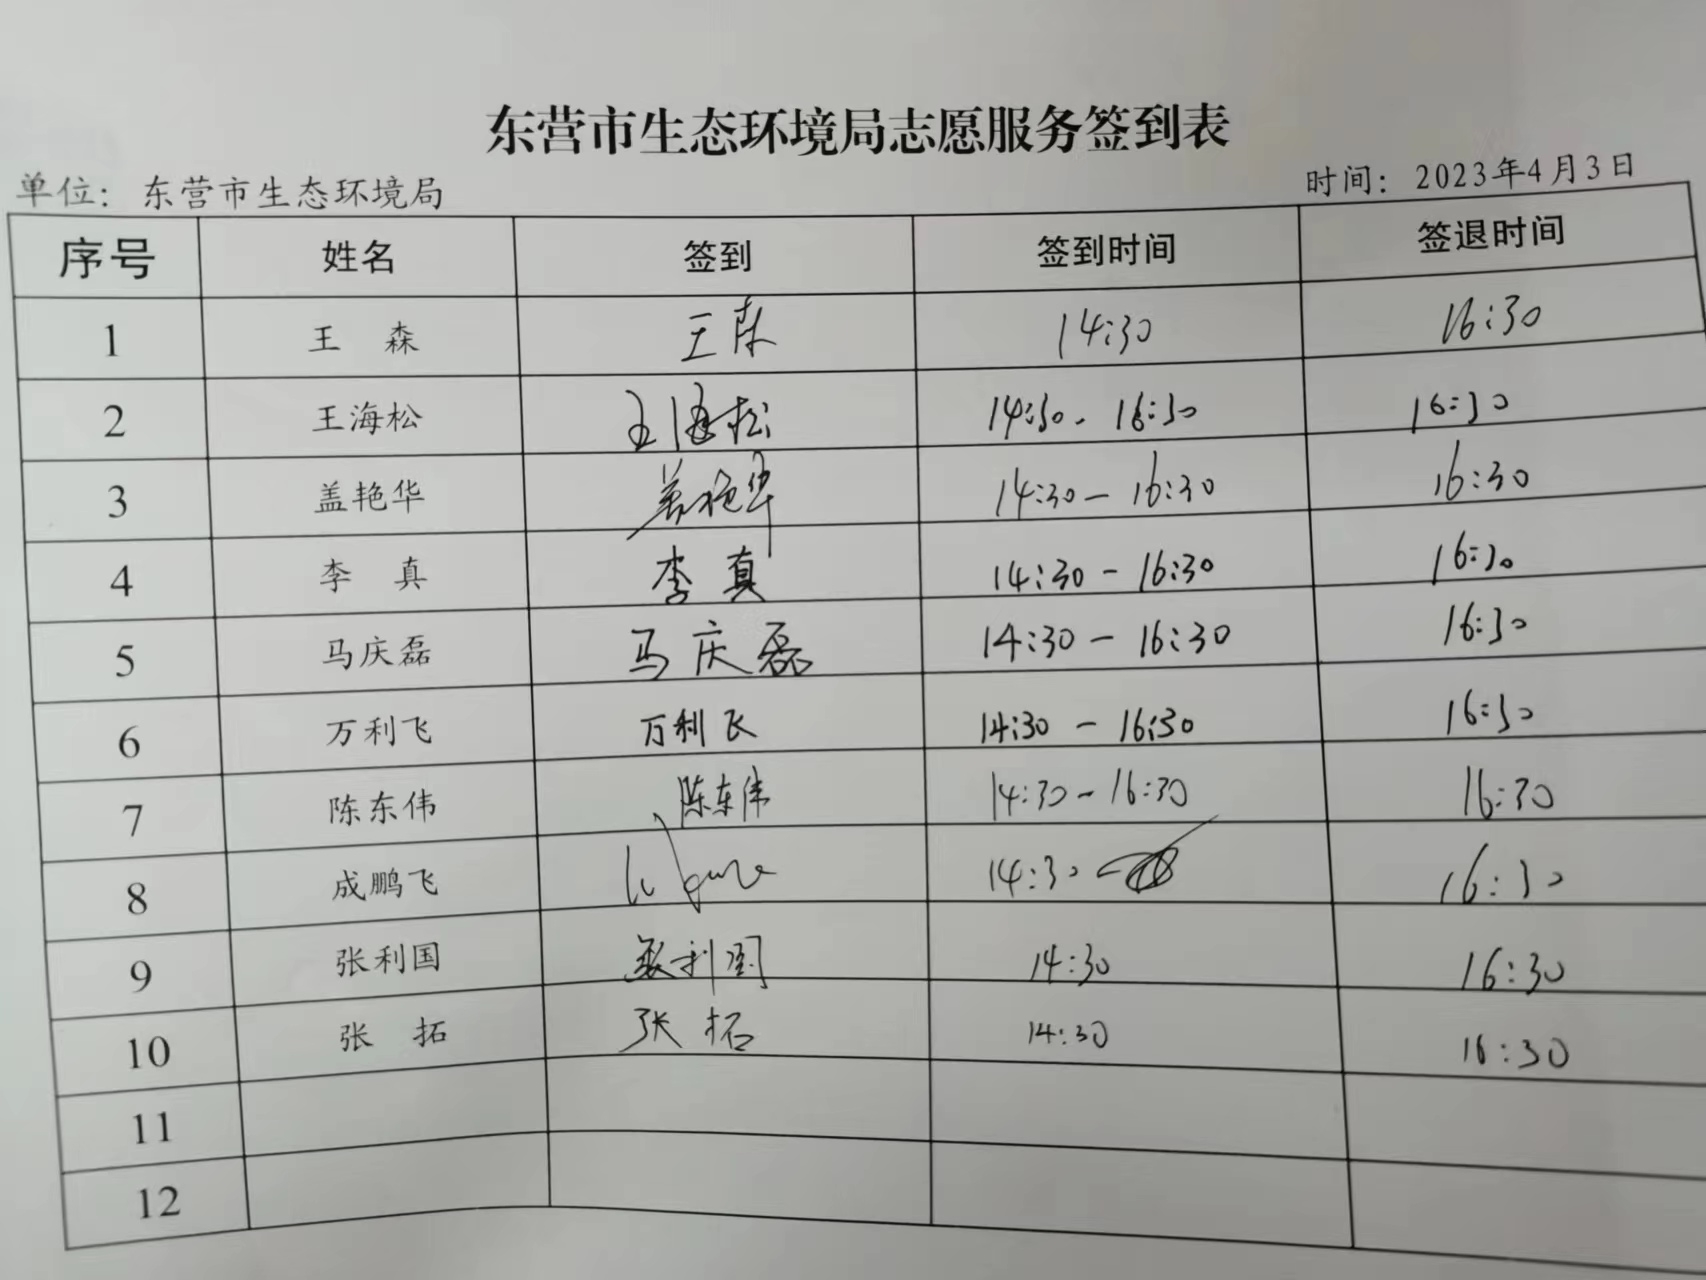 东营市生态环境局志愿服务签到表
单位：东营市生态环境局 时间：2023年4月3日
序号 姓名 签到 签到时间 签退时间
1 王 森 王森 14:30 16:30
2 王海松 王海松 14:30-16:30 16:30
3 盖艳华 盖艳华 14:30-16:30 16:30
4 李 真 李真 14:30-16:30 16:30
5 马庆磊 马庆磊 14:30-16:30 16:30
6 万利飞 万利飞 14:30-16:30 16:30
7 陈东伟 陈东伟 14:30-16:30 16:30
8 成鹏飞 14:30 16:30
9 张利国 张利国 14:30 16:30
10 张 拓 张拓 14:30 16:30
11
12